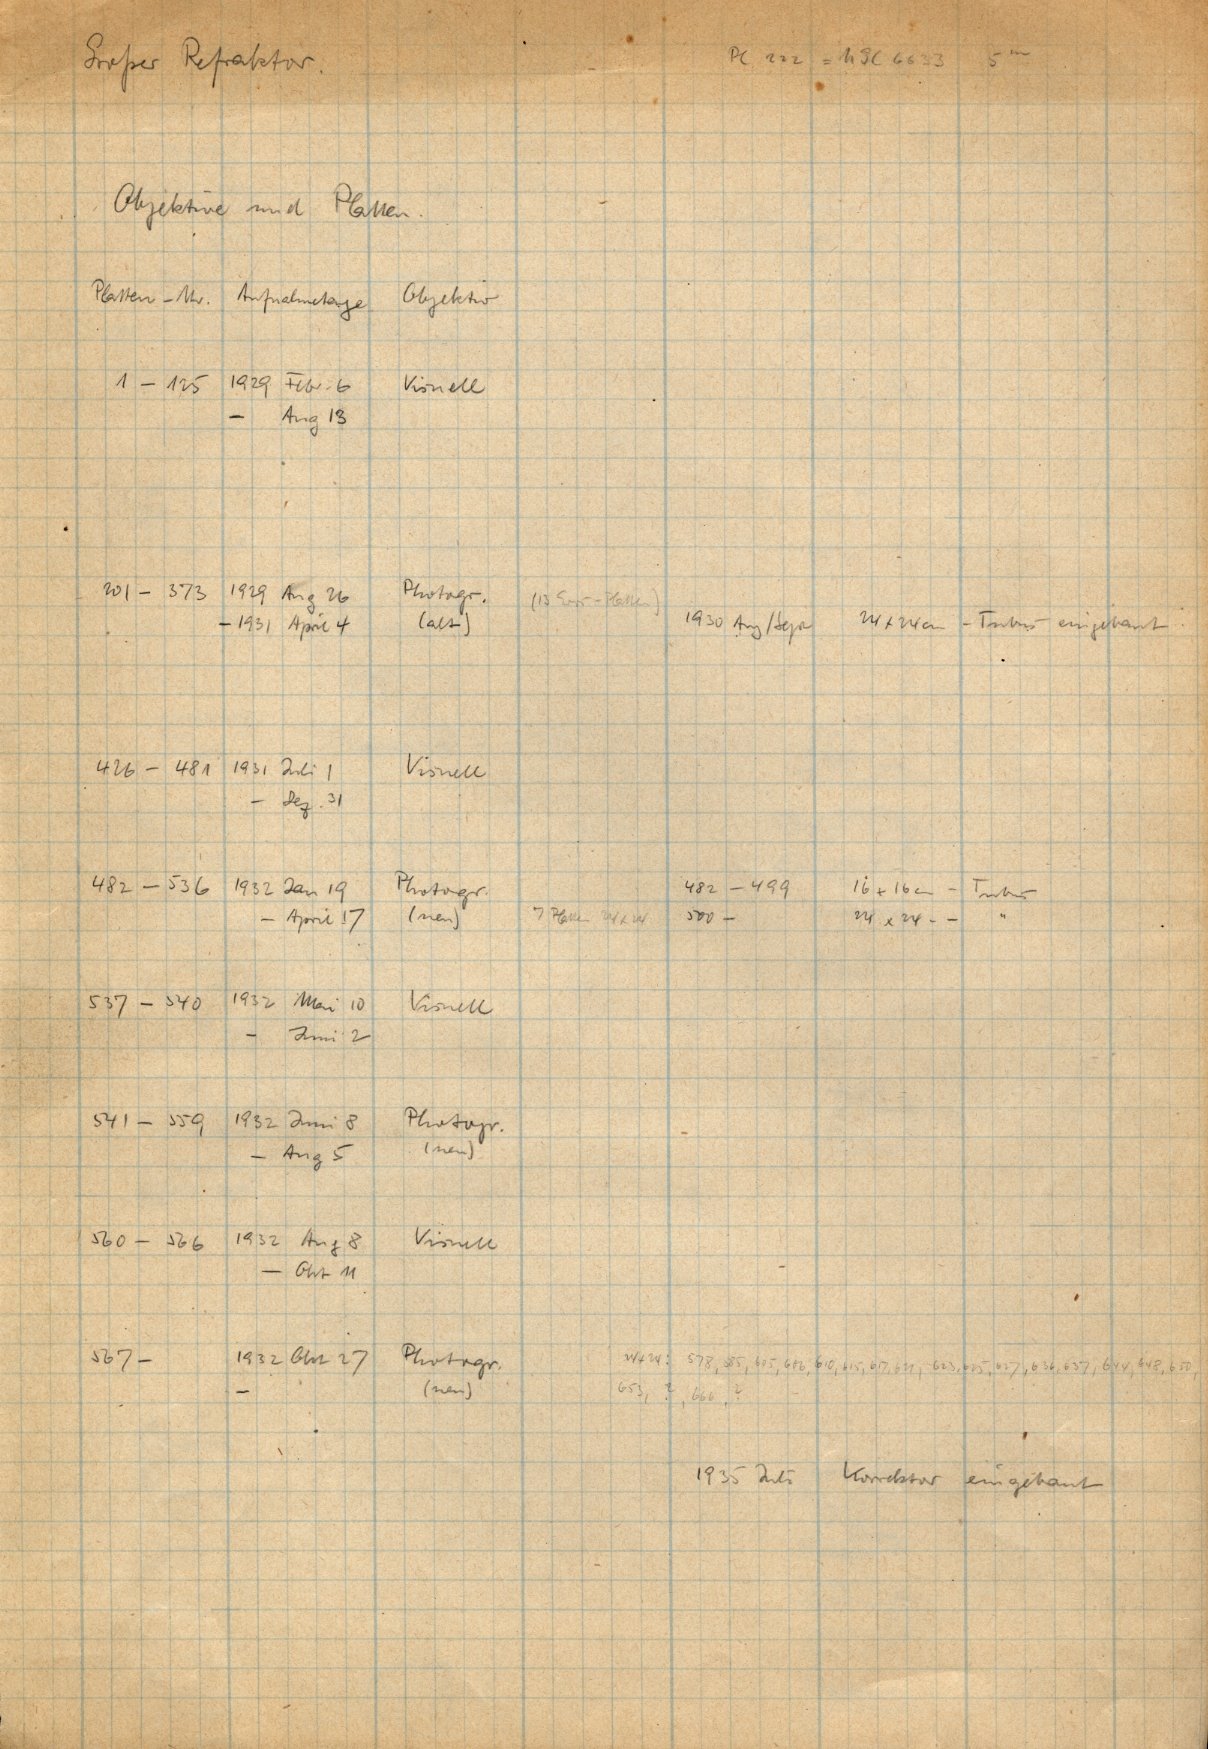 Großer Refraktor. Pl 222 = NGC 6633 5 m
Objektive und Platten.
Platten-Nr. Aufnahmetage Objektiv
1 – 125 1929 Febr. 6 Visuell
– Aug 13
201 – 373 1929 Aug 26 Photogr. (13 Platten)
– 1931 April 4 (alt) 1930 Aug/Sept 24 x 24 cm – Tubus eingebaut
426 – 481 1931 Juli 1 Visuell
– Dez. 31
482 – 536 1932 Jan 19 Photogr. 482 – 499 16 x 16 cm – Tubus
– April 17 (neu) 7 Platten 24 x 24 500 – 24 x 24 - – "
537 – 540 1932 Mai 10 Visuell
– Juni 2
541 – 559 1932 Juni 8 Photogr.
– Aug 5 (neu)
560 – 566 1932 Aug 8 Visuell
– Okt 11
567 – 1932 Okt 27 Photogr. 24 x 24: 578, 585, 605, 606, 610, 615, 617, 621, 623, 625, 627, 636, 637, 644, 648, 650,
– (neu) 653, ?, 666, ?
1935 Juli Korrektor eingebaut